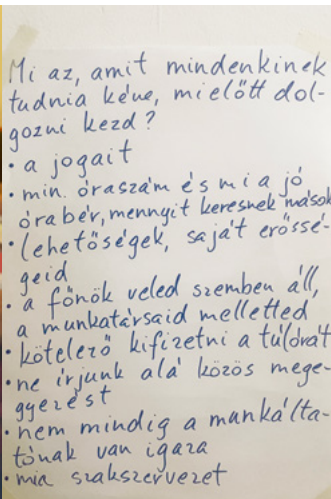 Mi az, amit mindenkinek
tudnia kéne, mielőtt dol-
gozni kezd?
• a jogait
• min. óraszám és mi a jó
órabér, mennyit keresnek mások
• lehetőségek, saját erőssé-
geid
• a főnök veled szemben áll,
a munkatársaid melletted
• kötelező kifizetni a túlórát
• ne írjunk alá közös mege-
gyezést
• nem mindig a munkálta-
tónak van igaza
• mia szakszervezet